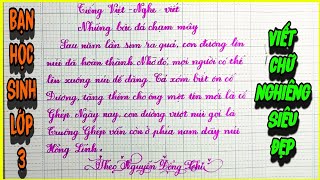 BẠN HỌC SINH LỚP 3
Tiếng Việt - Nghe viết
Những bậc đá chạm mây
Sau năm lần sim ra quả, con đường lên
núi đã hoàn thành. Nhờ đó, mọi người có thể
lên xuống núi dễ dàng. Cả xóm biết ơn cố
Đương, tặng thêm cho ông một tên mới là cố
Ghép. Ngày nay, con đường vượt núi gọi là
Truông Ghép vẫn còn ở phía nam dãy núi
Hồng Lĩnh.
Theo Nguyễn Đổng Chi
VIẾT CHỮ NGHIÊNG SIÊU ĐẸP